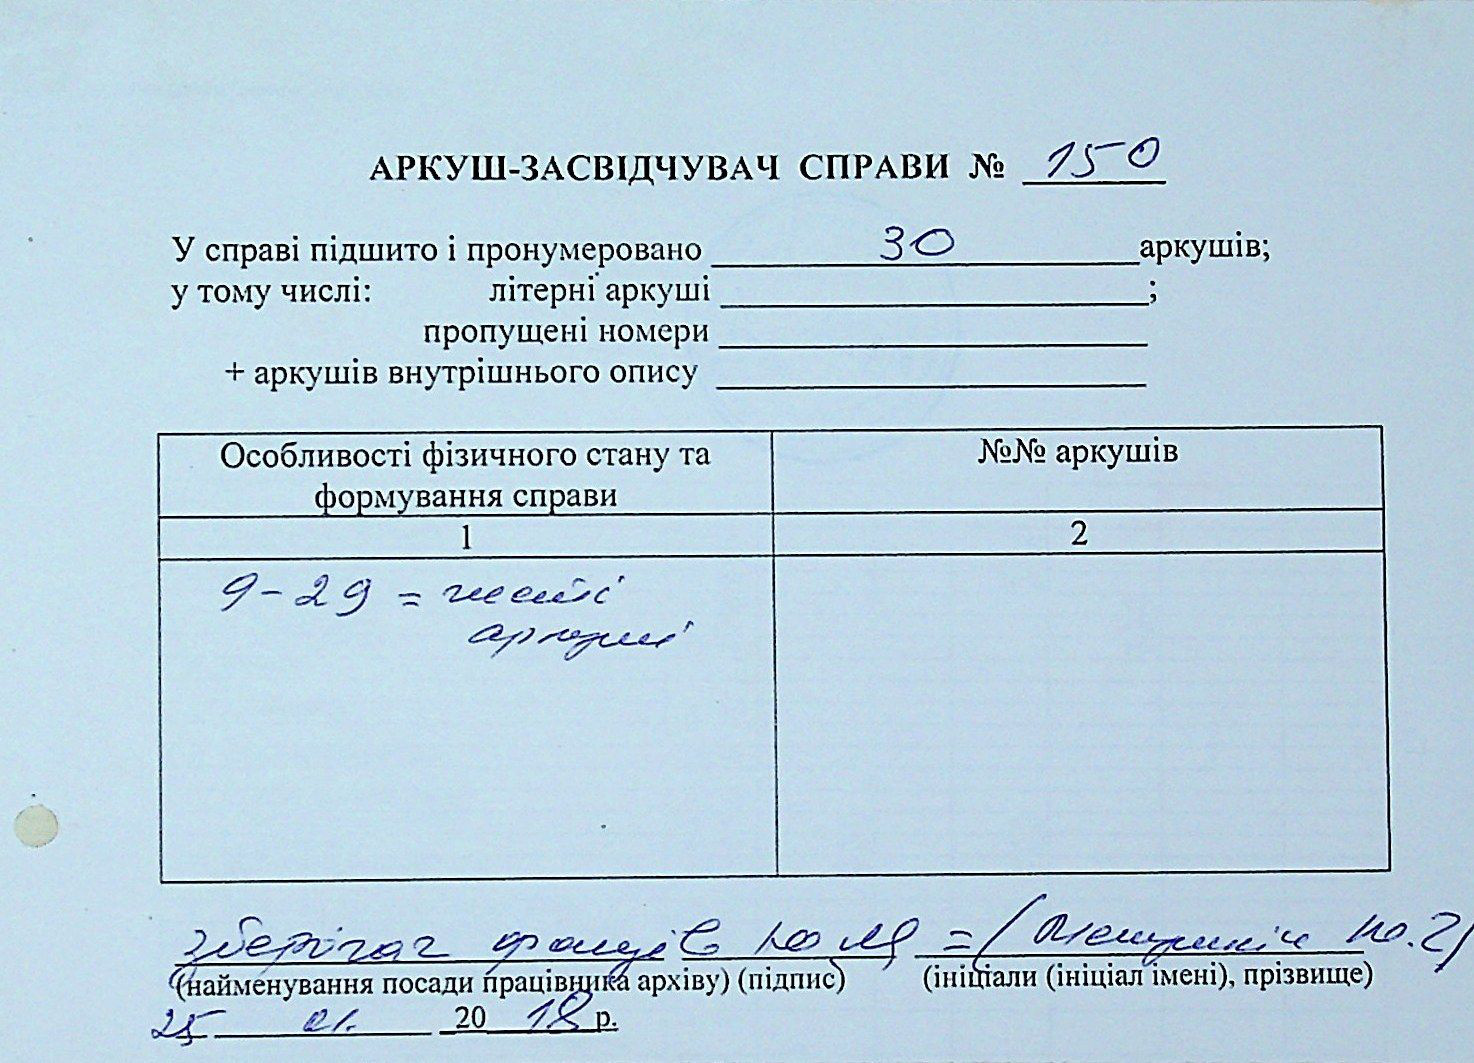 АРКУШ-ЗАСВІДЧУВАЧ СПРАВИ № 150
У справі підшито і пронумеровано 30 аркушів;
у тому числі: літерні аркуші ;
пропущені номери
+ аркушів внутрішнього опису
Особливості фізичного стану та формування справи
№№ аркушів
1
2
9-29 = чисті
аркуші
зберігач фондів
(найменування посади працівника архіву) (підпис) (ініціали (ініціал імені), прізвище)
25 01. 2018 р.